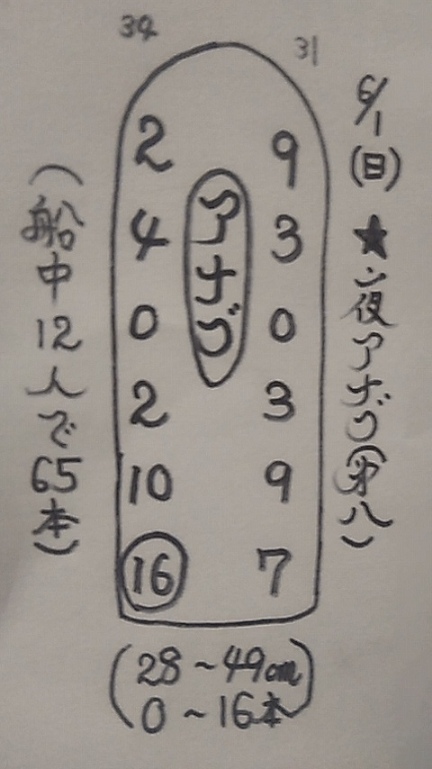 34 31
6/1(日) ★ミ夜アナゴ(第八)
アナゴ
2 9
4 3
0 0
2 3
10 9
16 7
(船中12人で65本)
(28~49cm
0~16本)